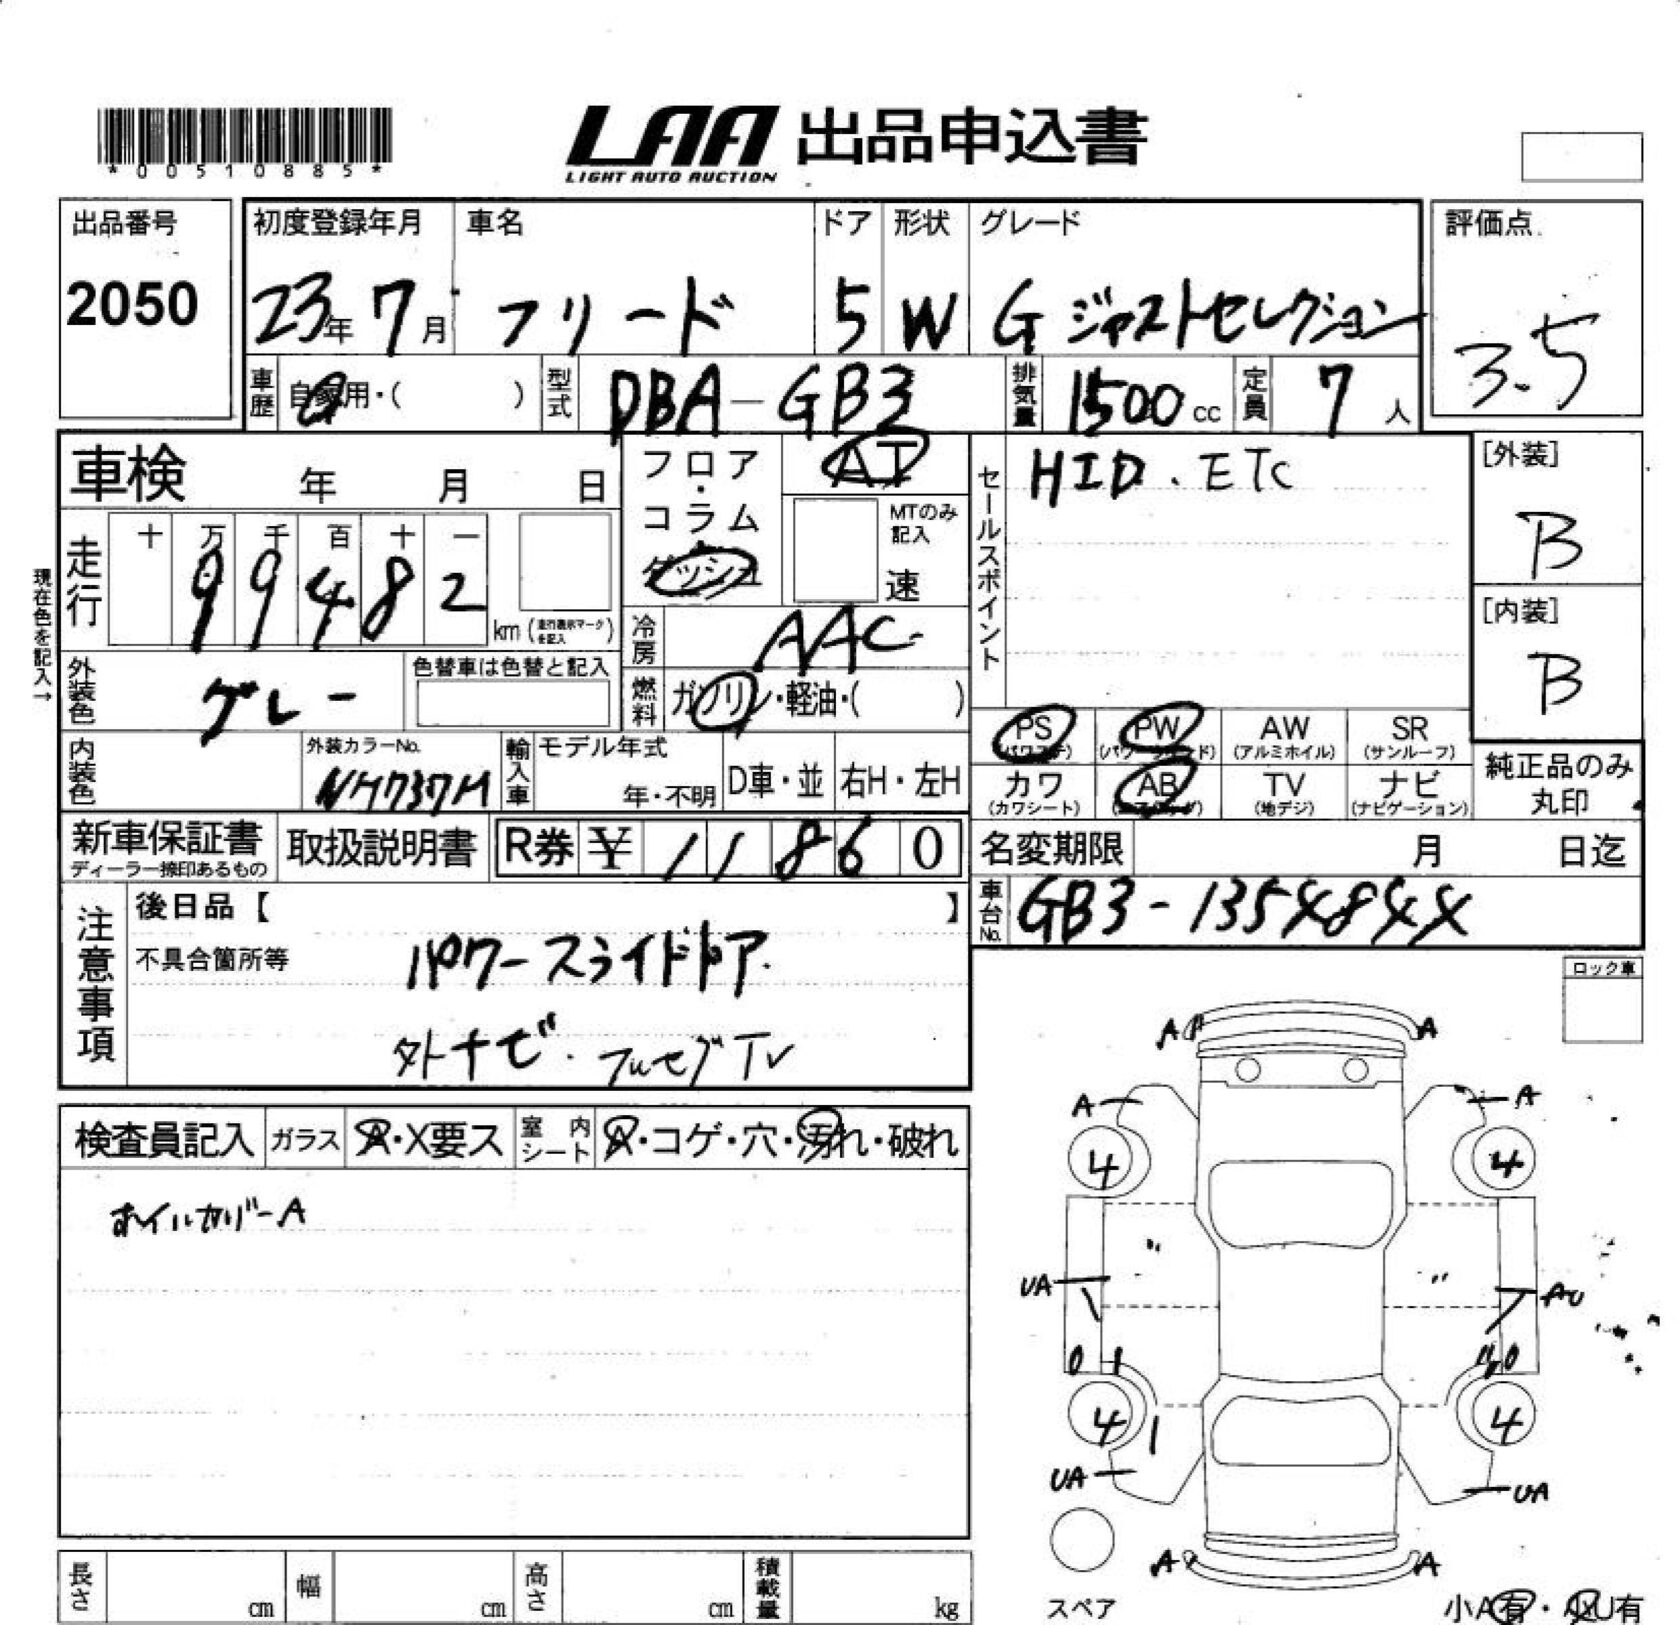 *00510885*
LAA 出品申込書
LIGHT AUTO AUCTION
出品番号
2050
初度登録年月 車名 ドア 形状 グレード
23年 7月 フリード 5 W G ジャストセレクション
評価点
3.5
車歴 自家用・( ) 型式 DBA-GB3 排気量 1500 cc 定員 7 人
車検 年 月 日
フロア・コラム・ダッシュ AT
MTのみ記入
速
セールスポイント HID・ETC
[外装]
B
[内装]
B
現在色を記入→
走行 十 万 千 百 十 一
99482 km (走行表示マークを記入)
冷房 AAC
外装色 グレー
色替車は色替と記入
燃料 ガソリン・軽油・( )
PS PW AW SR
(パワステ) (パワーウィンド) (アルミホイル) (サンルーフ)
カワ AB TV ナビ
(カワシート) (エアバッグ) (地デジ) (ナビゲーション)
純正品のみ
丸印
内装色 外装カラーNo. NH737M
輸入車 モデル年式 年・不明 D車・並 右H・左H
新車保証書
ディーラー捺印あるもの
取扱説明書 R券 ¥ 11860
名変期限 月 日迄
車台No. GB3-1354844
注意事項
後日品【 】
不具合箇所等
パワースライドドア
外ナビ・フルセグTV
ロック車
検査員記入 ガラス A・X要ス 室内シート A・コゲ・穴・汚れ・破れ
ホイルカバーA
A A
A A
4 4
UA AU
4 4
UA UA
A A
スペア
小A有・小U有
長さ cm 幅 cm 高さ cm 積載量 kg